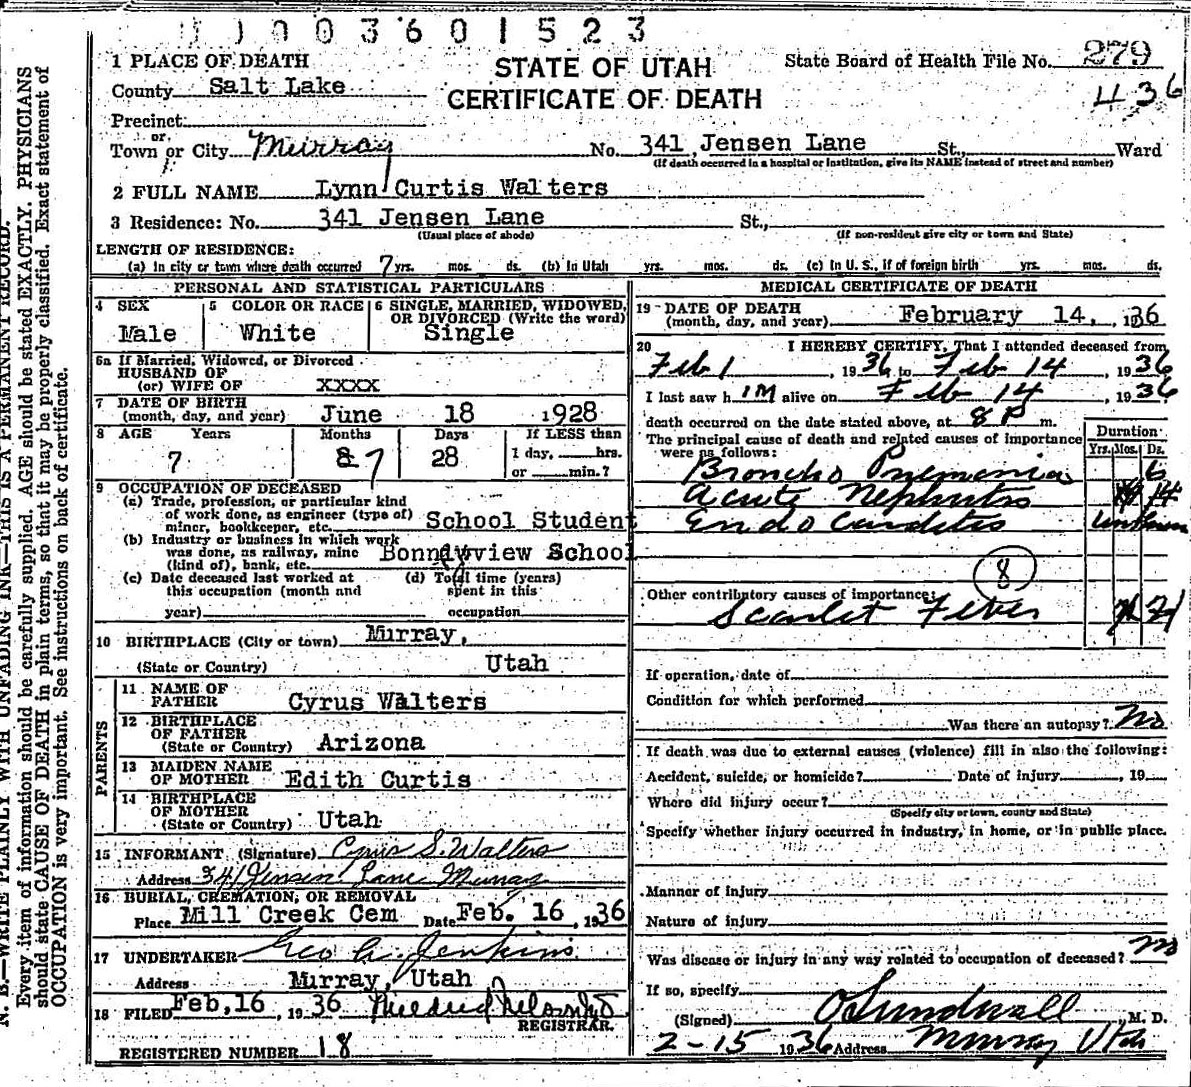 0 1 0 0 3 6 0 1 5 2 3
1 PLACE OF DEATH
STATE OF UTAH
CERTIFICATE OF DEATH
State Board of Health File No. 279
436
County Salt Lake
Precinct
or
Town or City Murray No. 341 Jensen Lane St., Ward
(If death occurred in a hospital or institution, give its NAME instead of street and number)
2 FULL NAME Lynn Curtis Walters
3 Residence: No. 341 Jensen Lane St.,
(Usual place of abode) (If non-resident give city or town and State)
LENGTH OF RESIDENCE:
(a) In city or town where death occurred 7 yrs. mos. ds. (b) In Utah yrs. mos. ds. (c) In U. S., if of foreign birth yrs. mos. ds.
PERSONAL AND STATISTICAL PARTICULARS
4 SEX
Male
5 COLOR OR RACE
White
6 SINGLE, MARRIED, WIDOWED, OR DIVORCED (Write the word)
Single
6a If Married, Widowed, or Divorced
HUSBAND OF
(or) WIFE OF XXXX
7 DATE OF BIRTH
(month, day, and year) June 18 1928
8 AGE Years Months Days If LESS than
7 8 7 28 1 day, hrs.
or min.?
9 OCCUPATION OF DECEASED
(a) Trade, profession, or particular kind
of work done, as engineer (type of)
miner, bookkeeper, etc. School Student
(b) Industry or business in which work
was done, as railway, mine
(kind of), bank, etc. Bonnyview School
(c) Date deceased last worked at
this occupation (month and
year)
(d) Total time (years)
spent in this
occupation
10 BIRTHPLACE (City or town) Murray,
(State or Country) Utah
PARENTS
11 NAME OF
FATHER Cyrus Walters
12 BIRTHPLACE
OF FATHER
(State or Country) Arizona
13 MAIDEN NAME
OF MOTHER Edith Curtis
14 BIRTHPLACE
OF MOTHER
(State or Country) Utah
15 INFORMANT (Signature) Cyrus S. Walters
Address 341 Jensen Lane Murray
16 BURIAL, CREMATION, OR REMOVAL
Place Mill Creek Cem Date Feb. 16, 1936
17 UNDERTAKER Geo A. Jenkins
Address Murray, Utah
18 FILED Feb, 16, 1936 Mildred
REGISTRAR.
REGISTERED NUMBER 18
MEDICAL CERTIFICATE OF DEATH
19 DATE OF DEATH
(month, day, and year) February 14, 1936
20 I HEREBY CERTIFY, That I attended deceased from
Feb 1, 1936 to Feb 14 1936
I last saw him alive on Feb 14, 1936
death occurred on the date stated above, at 8 P m.
The principal cause of death and related causes of importance
were as follows:
Duration
Yrs. Mos. Ds.
Broncho Pnemonia 6
Acute Nephritis 14
Endo Carditis unknown
8
Other contributory causes of importance:
Scarlet Fever 21
If operation, date of
Condition for which performed
Was there an autopsy? No
If death was due to external causes (violence) fill in also the following:
Accident, suicide, or homicide? Date of injury, 19
Where did injury occur?
(Specify city or town, county and State)
Specify whether injury occurred in industry, in home, or in public place.
Manner of injury
Nature of injury
Was disease or injury in any way related to occupation of deceased? no
If so, specify
(Signed) O Sundwall M. D.
2-15 1936 Address Murray Utah
N. B.—WRITE PLAINLY WITH UNFADING INK—THIS IS A PERMANENT RECORD.
Every item of information should be carefully supplied. AGE should be stated EXACTLY. PHYSICIANS
should state CAUSE OF DEATH in plain terms, so that it may be properly classified. Exact statement of
OCCUPATION is very important. See instructions on back of certificate.